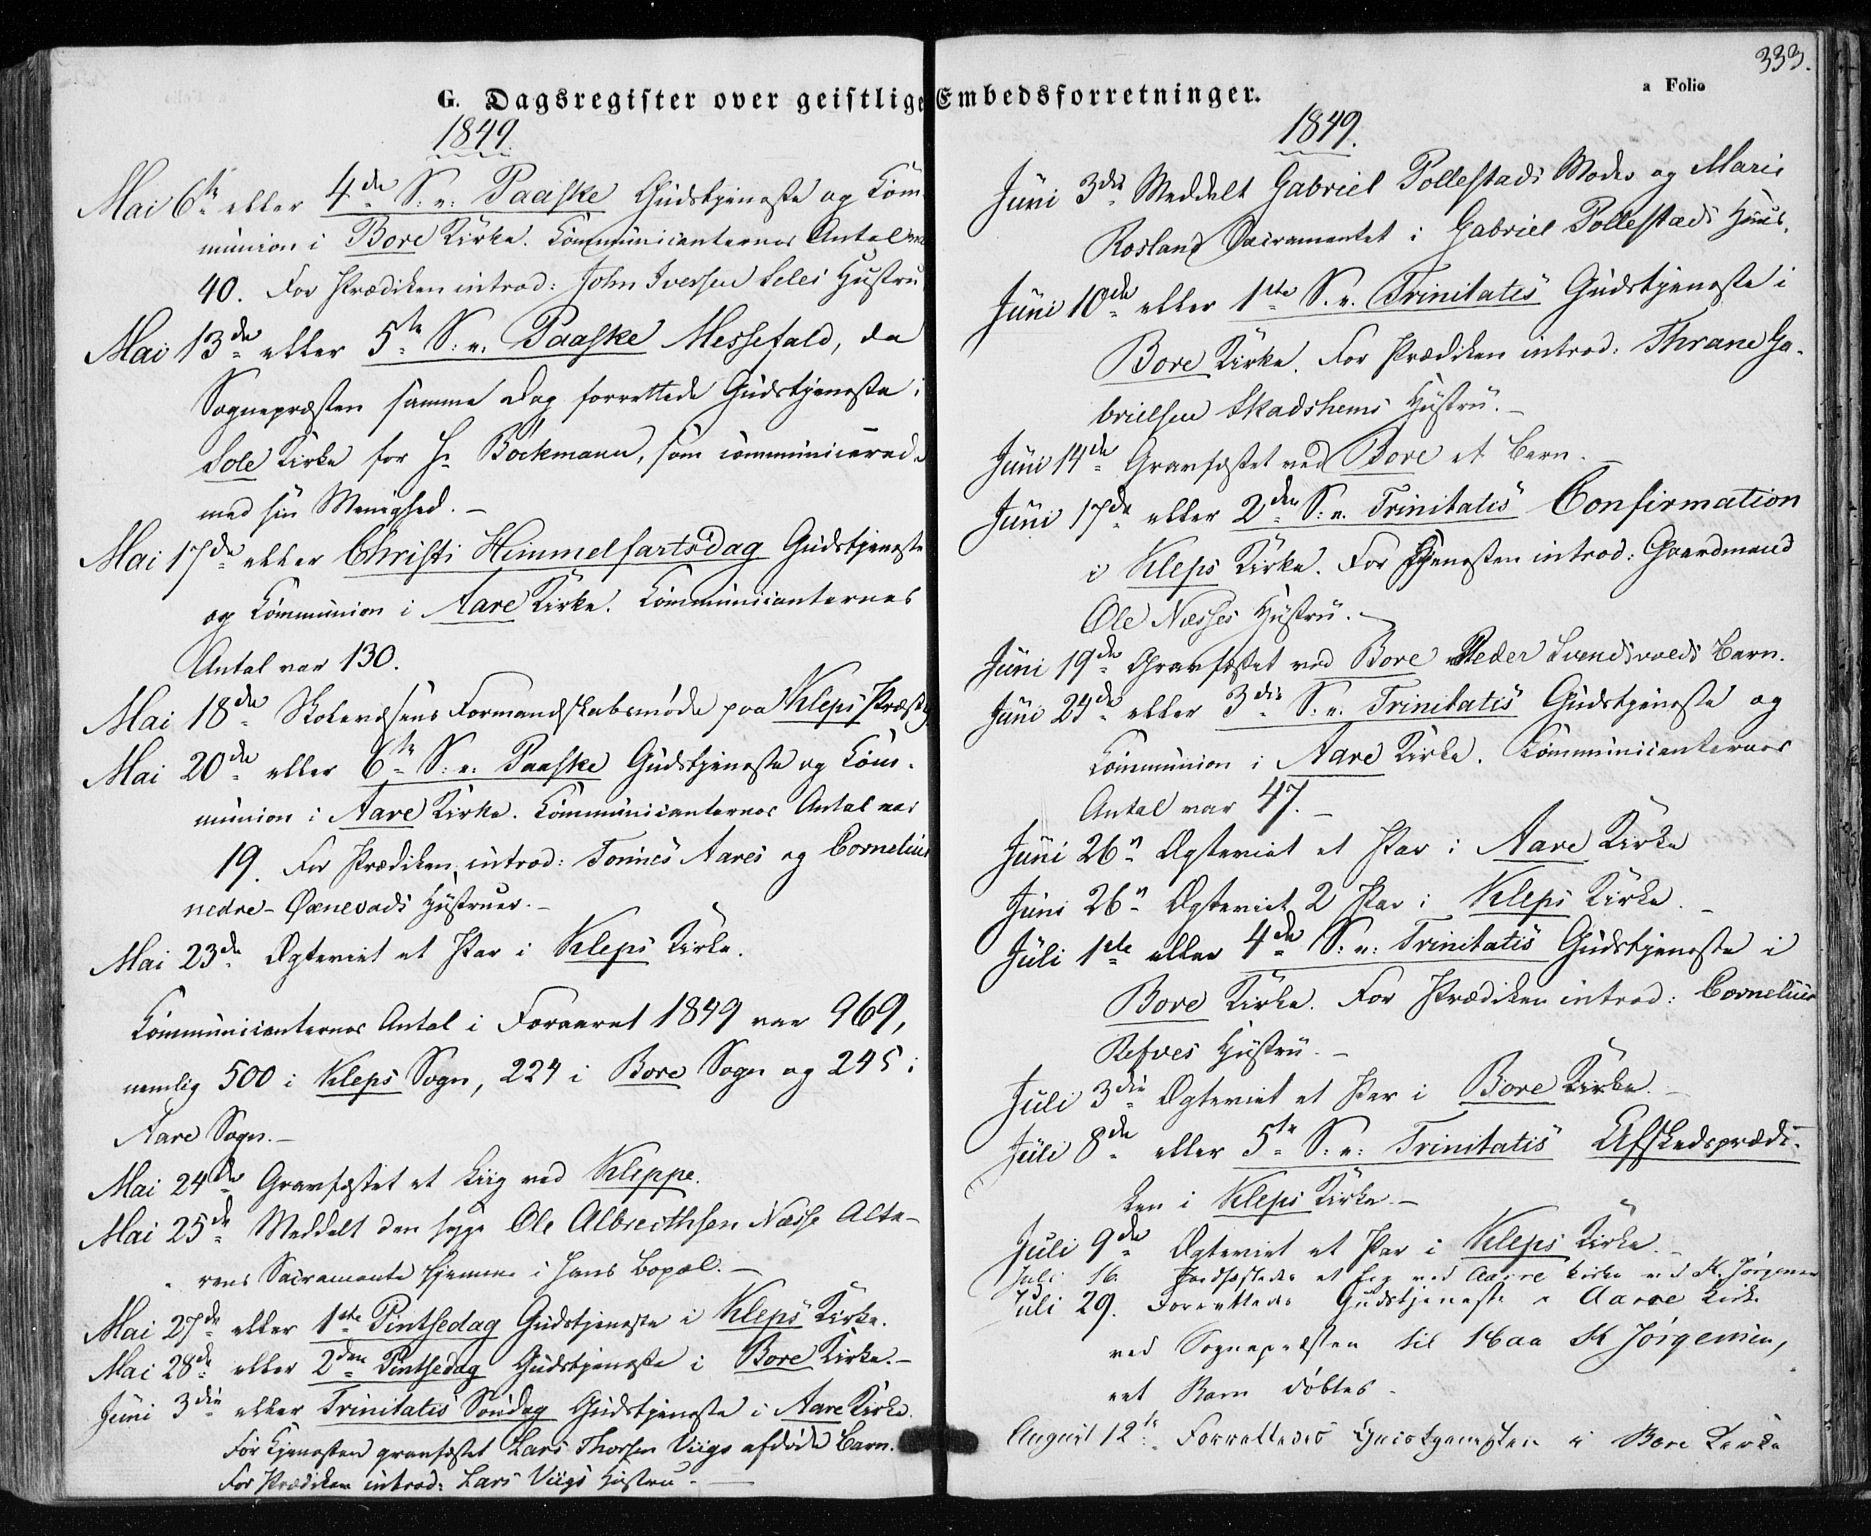 G. Dagsregister over geistlige Embedsforretninger.
1849.
Mai 6te eller 4de S: e: Paaske Gudstjeneste og Com-
munion i Bore Kirke. Communicanternes Antal var
40. For Prædiken introd: John Iversen Seles Hustru
Mai 13de eller 5te S: e. Paaske Messefald, da
Sognepræsten samme Dag forrettede Gudstjeneste i
Sole Kirke for Hr Böckmann, som communicerede
med sin Menighed.
Mai 17de eller Christi Himmelfartsdag Gudstjeneste
og Communion i Aare Kirke. Communicanternes
Antal var 130.
Mai 18de Skolevæsens Formandskabsmøde paa Kleps Præstg
Mai 20de eller 6te S: e: Paaske Gudstjeneste og Com-
munion i Aare Kirke. Communicanternes Antal var
19. For Prædiken introd: Tønnes Aares og Cornelius
nedre-Øxnevads Hustruer.
Mai 23de Ægteviet et Par i Kleps Kirke.
Communicanternes Antal i Foraaret 1849 var 969,
nemlig 500 i Kleps Sogn, 224 i Bore Sogn og 245 i
Aare Sogn.
Mai 24de Gravfæstet et Liig ved Kleppe.
Mai 25de Meddelt den syge Ole Albrecthsen Næsse Alte-
rens Sacramente hjemme i hans Bopæl.
Mai 27de eller 1ste Pintsedag Gudstjeneste i Kleps Kirke.
Mai 28de eller 2den Pintsedag Gudstjeneste i Bore Kirke.
Juni 3die eller Trinitatis Søndag Gudstjeneste i Aare Kirke.
Før Tjenesten gravfæstet Lars Thorsen Viigs afdøde Barn.
For Prædiken introd: Lars Viigs Hustru.
333.
a Folio
1849.
Juni 3die Meddelt Gabriel Pollestads Moder og Maris
Rosland Sacramentet i Gabriel Pollestads Huus.
Juni 10de eller 1ste S. e. Trinitatis Gudstjeneste i
Bore Kirke. For Prædiken introd: Thrane Ga-
brielsen Skadshems Hustru.
Juni 14de Gravfæstet ved Bore et Barn.
Juni 17de eller 2den S: e. Trinitatis Confirmation
i Kleps Kirke. For Tjenesten introd: Gaardmand
Ole Næsses Hustru.
Juni 19de Gravfæstet ved Bore Peder Svendsvolds Barn.
Juni 24de eller 3die S: e. Trinitatis Gudstjeneste og
Communion i Aare Kirke. Communicanternes
Antal var 47.
Juni 26n Ægteviet et Par i Aare Kirke
Juni 26n Ægteviet 2 Par i Kleps Kirke.
Juli 1ste eller 4de S: e: Trinitatis Gudstjeneste i
Bore Kirke. For Prædiken introd: Cornelius
Refves Hustru.
Juli 3die Ægteviet et Par i Bore Kirke.
Juli 8de eller 5te S: e: Trinitatis Afskedsprædi-
ken i Kleps Kirke.
Juli 9de Ægteviet et Par i Kleps Kirke.
Juli 16. Jordfæstedes et Lig ved Aarre Kirke ved K. Jørgensen
Juli 29. Forrettedes Gudstjeneste i Aarre Kirke
ved Sognepræsten til Haa K Jørgensen,
eet Barn døbtes.
August 12te Forrettedes Gudstjenesten i Bore Kirke